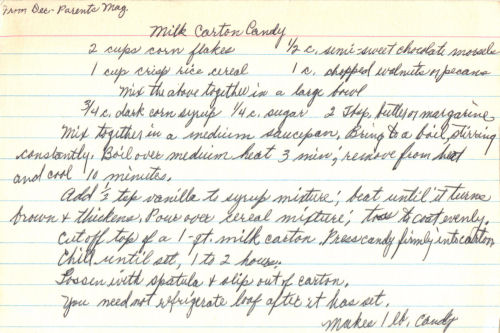 From Dec. Parents Mag.
Milk Carton Candy
2 cups corn flakes 1/2 c. semi-sweet chocolate morsels
1 cup crisp rice cereal 1 c. chopped walnuts or pecans
Mix the above together in a large bowl
3/4 c. dark corn syrup 1/4 c. sugar 2 Tbsp. butter or margarine
Mix together in a medium saucepan, Bring to a boil, stirring
constantly. Boil over medium heat 3 min; remove from heat
and cool 10 minutes.
Add 1/2 tsp vanilla to syrup mixture; beat until it turns
brown & thickens. Pour over cereal mixture; toss to coat evenly.
Cut off top of a 1-qt. milk carton. Press candy firmly into carton
Chill until set, 1 to 2 hours.
Loosen with spatula & slip out of carton.
You need not refrigerate loaf after it has set.
Makes 1 lb. candy